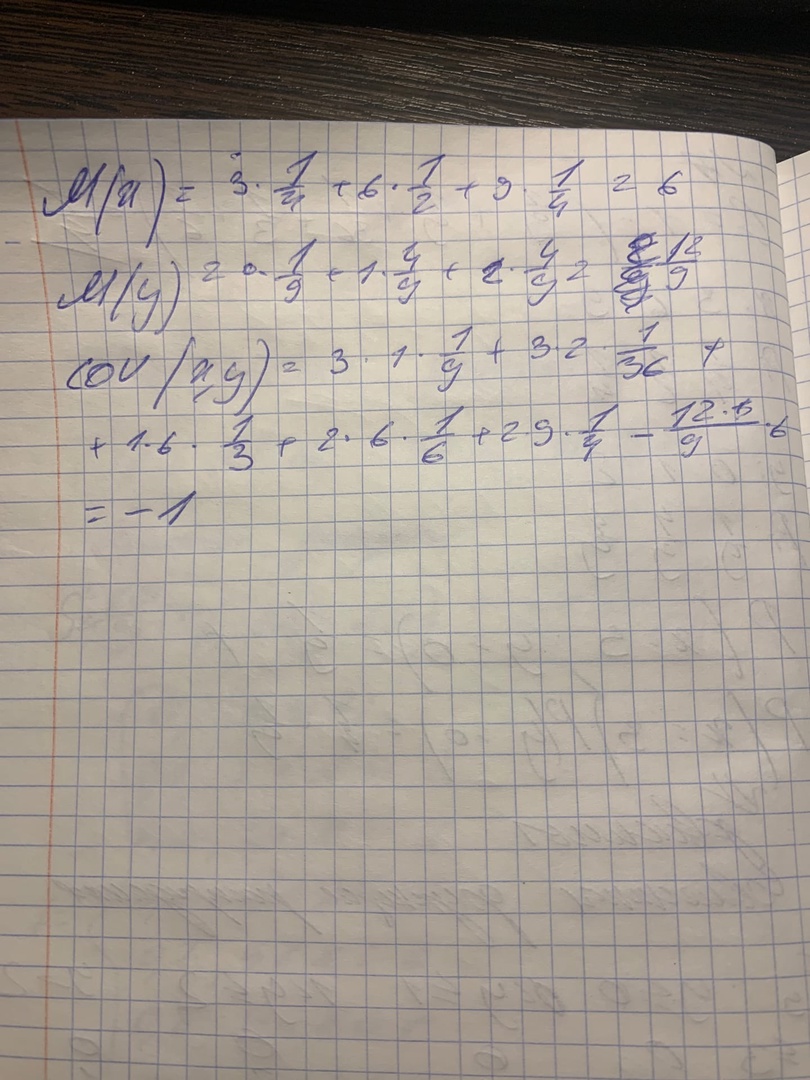 M(x) = 3 · 1/4 + 6 · 1/2 + 9 · 1/4 = 6
M(y) = 0 · 1/9 + 1 · 4/9 + 2 · 4/9 = 12/9
cov(x,y) = 3 · 1 · 1/9 + 3 · 2 · 1/36 +
+ 1 · 6 · 1/3 + 2 · 6 · 1/6 + 2 9 · 1/4 - 12·6/9 · 6
= -1